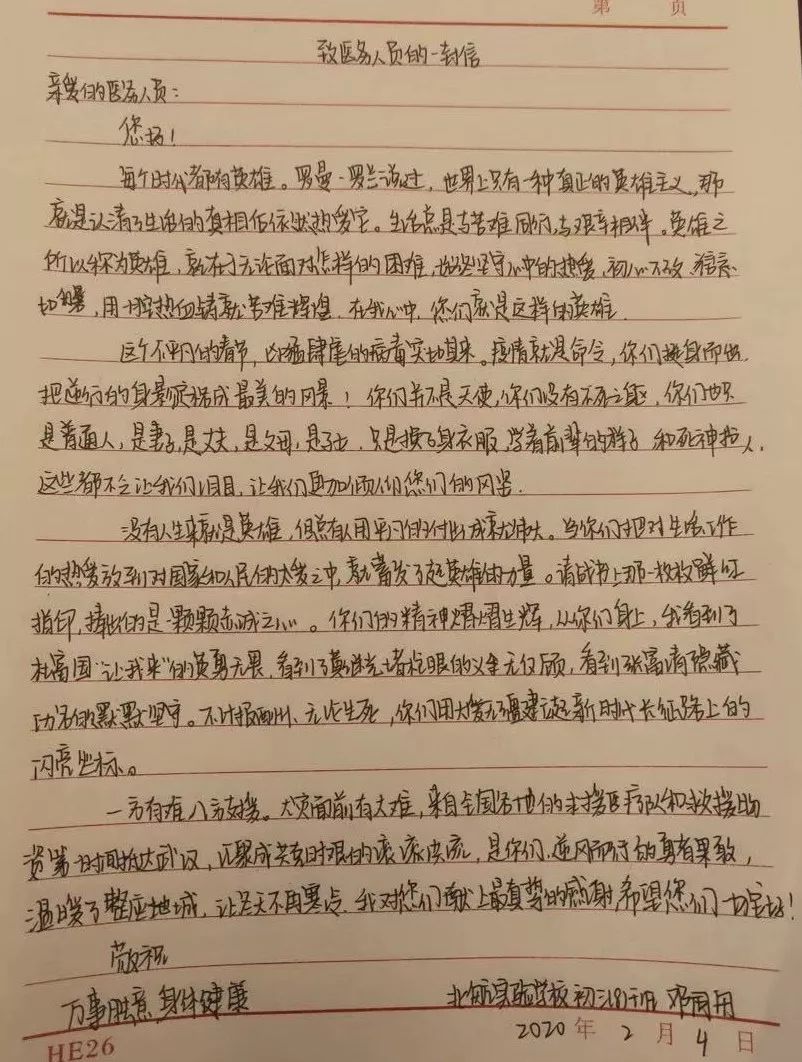 第 页
致医务人员的一封信
亲爱的医务人员：
您好！
每个时代都有英雄。罗曼·罗兰说过，世界上只有一种真正的英雄主义，那
就是认清了生活的真相后依然热爱它。生活总是与苦难同行，与艰辛相伴。英雄之
所以称为英雄，就在于无论面对怎样的困难，都坚守心中的热爱，初心不改，
用一腔热血铸就苦难辉煌。在我心中，您们就是这样的英雄。
这个不平凡的春节，凶猛肆虐的病毒突如其来。疫情就是命令，你们挺身而出，
把逆行的身影定格成最美的风景！你们并不是天使，你们没有不死之躯，你们也只
是普通人，是妻子，是丈夫，是父母，是子女，只是换了身衣服，学着前辈的样子 和死神抢人。
这些都不会让我们泪目，让我们更加倾仰您们的风采。
没有人生来就是英雄，但总有人用平凡的付出成就伟大。当你们把对生活工作
的热爱放到对国家和人民的大爱之中，就蓄发了英雄的力量。请战书上那一枚枚鲜红
指印，捧出的是一颗颗赤诚之心。你们的精神熠熠生辉，从你们身上，我看到了
杜富国"让我来"的英勇无畏，看到了黄继光堵枪眼的义无反顾，看到张富清隐藏
功名的默默坚守。不计报酬、无论生死，你们用大爱无疆建起新时代长征路上的
闪亮坐标。
一方有难八方支援。大灾面前有大难，来自全国各地的支援医疗队和救援物
资第一时间抵达武汉，汇聚成共克时艰的滚滚洪流，是你们，逆风而行的勇者果敢，
温暖了整座城，让冬天不再寒冷。我对您们献上最真挚的感谢，希望您们一切安好！
敬祝
万事胜意 身体健康
北航实验学校初三 班 邓雨用
2020年2月4日
HE26